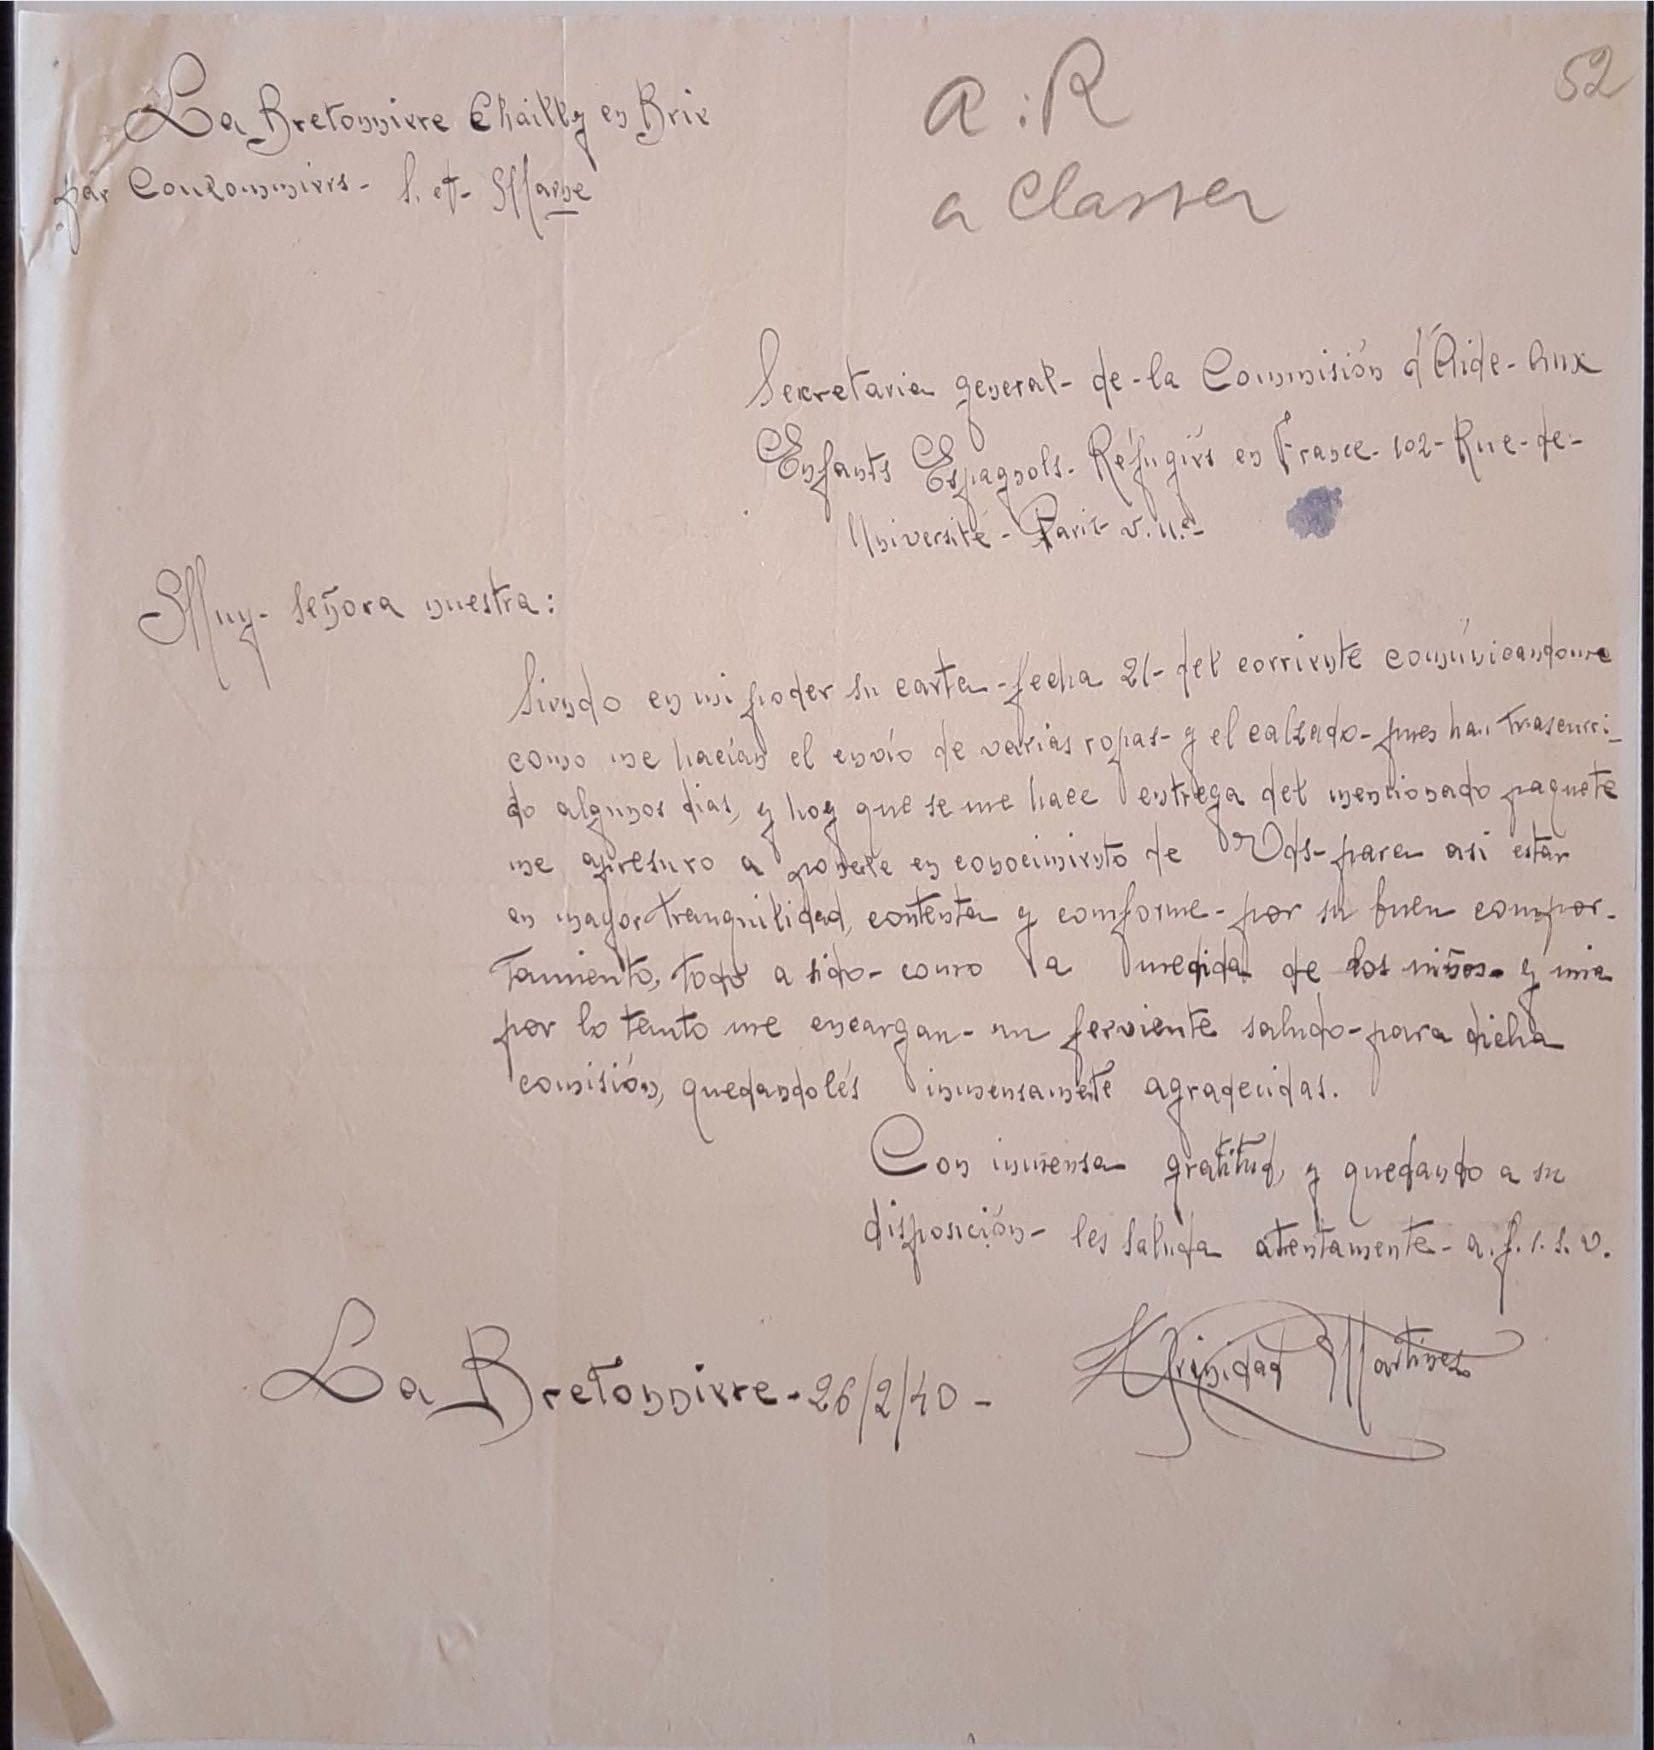 La Bretonniere Chailly en Brie
par Coulommiers - S. et - Marne
A : R
a classer
52
Secretaria general - de - la Commisión d'Aide - Aux
Enfants Espagnols - Réfugiés en France - 102 - Rue - de -
Université - Paris - V.II.e -
Muy - señora nuestra :
Siendo en mi poder su carta - fecha 21 - del corriente comúnicandome
como me hacían el envío de varias ropas - y el calzado - pues han trascurri_
do algunos dias, y hoy que se me hace entrega del mencionado paquete
me apresuro a ponerle en conocimiento de Vds - para asi estar
en mayor tranquilidad, contenta y comforme - por su buen compor -
tamiento, todo a sido - como a medida de los niños - y mia
por lo tanto me encargan - un ferviente saludo - para dicha
comisión, quedandolés inmensamente agradecidas.
Con inmensa gratitud, y quedando a su
disposición - les saluda atentamente - a. f. s. s. v.
La Bretonniere - 26/2/40 -
Trinidad Martinez